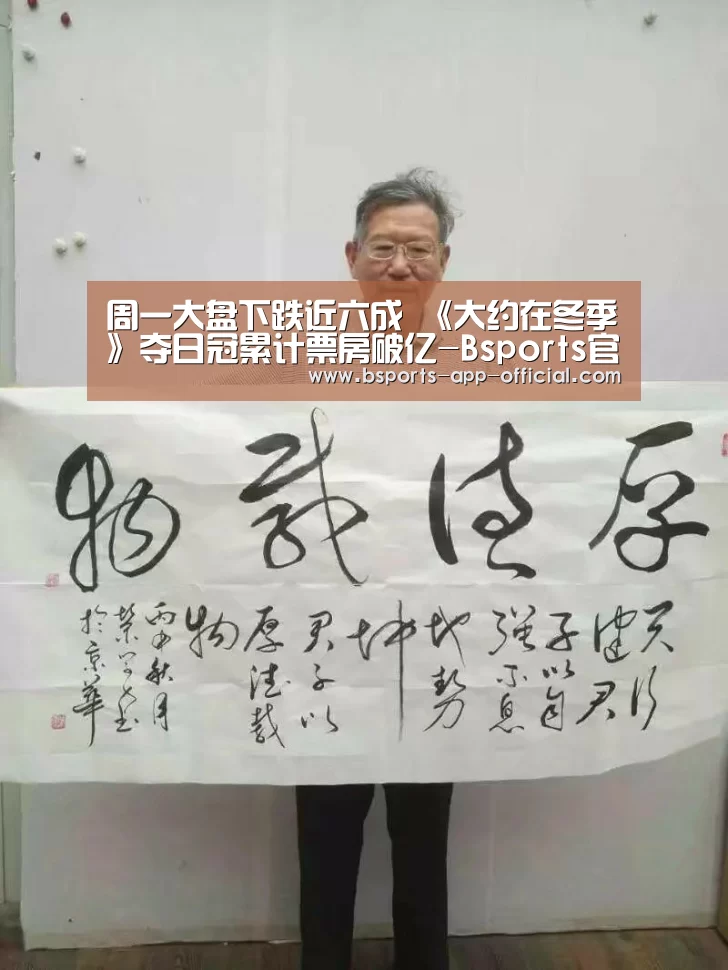 周一大盘下跌近六成 《大约在冬季
》夺日冠累计票房破亿-Bsports官
www.bsports-app-official.com
厚德载物
天行
健君
子以自
强不息
地势
坤
君子以
厚德载
物
丙申秋月
於京华